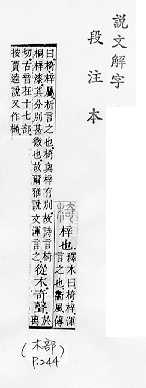 說文解字
段注本
梓也
釋木曰椅梓渾
言之也衞風傳
曰椅梓屬析言之也椅與梓有別故詩言椅
桐梓漆其分別甚微也故爾雅說文渾言之
從木奇聲
切古音在十七部
按賈逵說又作
(木部)
P.244